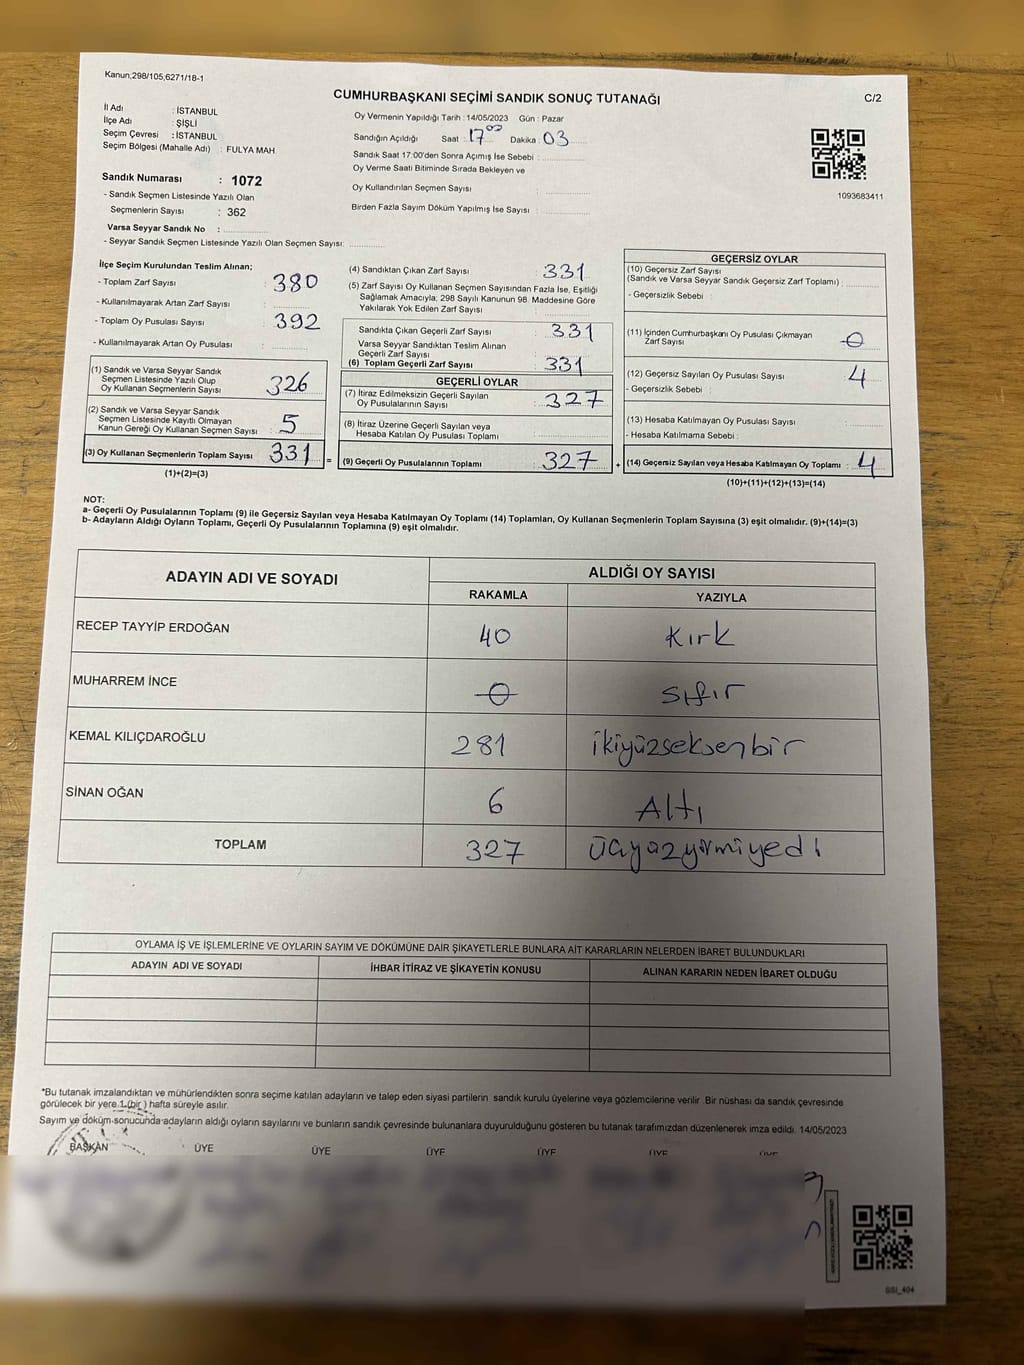 Kanun;298/105;6271/18-1
CUMHURBAŞKANI SEÇİMİ SANDIK SONUÇ TUTANAĞI
C/2
İl Adı : İSTANBUL
İlçe Adı : ŞİŞLİ
Seçim Çevresi : İSTANBUL
Seçim Bölgesi (Mahalle Adı) : FULYA MAH.
Sandık Numarası : 1072
- Sandık Seçmen Listesinde Yazılı Olan
Seçmenlerin Sayısı : 362
Varsa Seyyar Sandık No :
- Seyyar Sandık Seçmen Listesinde Yazılı Olan Seçmen Sayısı:
Oy Vermenin Yapıldığı Tarih : 14/05/2023 Gün : Pazar
Sandığın Açıldığı Saat : 17 00 Dakika : 03
Sandık Saat 17:00'den Sonra Açımış İse Sebebi :
Oy Verme Saati Bitiminde Sırada Bekleyen ve
Oy Kullandırılan Seçmen Sayısı :
Birden Fazla Sayım Döküm Yapılmış İse Sayısı :
1093683411
İlçe Seçim Kurulundan Teslim Alınan;
- Toplam Zarf Sayısı : 380
- Kullanılmayarak Artan Zarf Sayısı :
- Toplam Oy Pusulası Sayısı : 392
- Kullanılmayarak Artan Oy Pusulası :
(1) Sandık ve Varsa Seyyar Sandık
Seçmen Listesinde Yazılı Olup
Oy Kullanan Seçmenlerin Sayısı : 326
(2) Sandık ve Varsa Seyyar Sandık
Seçmen Listesinde Kayıtlı Olmayan
Kanun Gereği Oy Kullanan Seçmen Sayısı : 5
(3) Oy Kullanan Seçmenlerin Toplam Sayısı : 331 =
(1)+(2)=(3)
(4) Sandıktan Çıkan Zarf Sayısı : 331
(5) Zarf Sayısı Oy Kullanan Seçmen Sayısından Fazla İse, Eşitliği
Sağlamak Amacıyla; 298 Sayılı Kanunun 98. Maddesine Göre
Yakılarak Yok Edilen Zarf Sayısı :
Sandıkta Çıkan Geçerli Zarf Sayısı : 331
Varsa Seyyar Sandıktan Teslim Alınan
Geçerli Zarf Sayısı :
(6) Toplam Geçerli Zarf Sayısı : 331
GEÇERLİ OYLAR
(7) İtiraz Edilmeksizin Geçerli Sayılan
Oy Pusulalarının Sayısı : 327
(8) İtiraz Üzerine Geçerli Sayılan veya
Hesaba Katılan Oy Pusulası Toplamı :
(9) Geçerli Oy Pusulalarının Toplamı : 327 +
GEÇERSİZ OYLAR
(10) Geçersiz Zarf Sayısı
(Sandık ve Varsa Seyyar Sandık Geçersiz Zarf Toplamı) :
- Geçersizlik Sebebi :
(11) İçinden Cumhurbaşkanı Oy Pusulası Çıkmayan
Zarf Sayısı : 0
(12) Geçersiz Sayılan Oy Pusulası Sayısı : 4
- Geçersizlik Sebebi :
(13) Hesaba Katılmayan Oy Pusulası Sayısı :
- Hesaba Katılmama Sebebi :
(14) Geçersiz Sayılan veya Hesaba Katılmayan Oy Toplamı : 4
(10)+(11)+(12)+(13)=(14)
NOT:
a- Geçerli Oy Pusulalarının Toplamı (9) ile Geçersiz Sayılan veya Hesaba Katılmayan Oy Toplamı (14) Toplamları, Oy Kullanan Seçmenlerin Toplam Sayısına (3) eşit olmalıdır. (9)+(14)=(3)
b- Adayların Aldığı Oyların Toplamı, Geçerli Oy Pusulalarının Toplamına (9) eşit olmalıdır.
ADAYIN ADI VE SOYADI
ALDIĞI OY SAYISI
RAKAMLA YAZIYLA
RECEP TAYYİP ERDOĞAN 40 Kırk
MUHARREM İNCE 0 sıfır
KEMAL KILIÇDAROĞLU 281 ikiyüzseksenbir
SİNAN OĞAN 6 Altı
TOPLAM 327 üçyüzyirmiyedi
OYLAMA İŞ VE İŞLEMLERİNE VE OYLARIN SAYIM VE DÖKÜMÜNE DAİR ŞİKAYETLERLE BUNLARA AİT KARARLARIN NELERDEN İBARET BULUNDUKLARI
ADAYIN ADI VE SOYADI İHBAR İTİRAZ VE ŞİKAYETİN KONUSU ALINAN KARARIN NEDEN İBARET OLDUĞU
*Bu tutanak imzalandıktan ve mühürlendikten sonra seçime katılan adayların ve talep eden siyasi partilerin sandık kurulu üyelerine veya gözlemcilerine verilir .Bir nüshası da sandık çevresinde
görülecek bir yere 1 (bir ) hafta süreyle asılır.
Sayım ve döküm sonucunda adayların aldığı oyların sayılarını ve bunların sandık çevresinde bulunanlara duyurulduğunu gösteren bu tutanak tarafımızdan düzenlenerek imza edildi. 14/05/2023
BAŞKAN ÜYE ÜYE ÜYE ÜYE ÜYE ÜYE
SSI_404